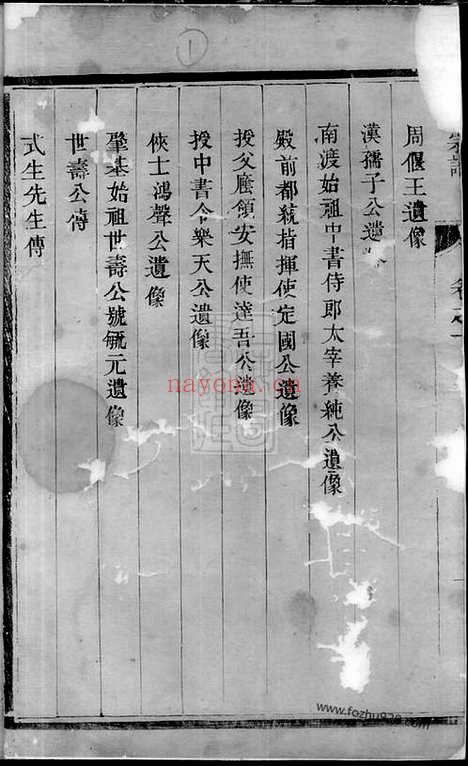 ①
宗譜
卷之一
周偃王遺像
漢孺子公遺
南渡始祖中書侍郎太宰養純公遺像
殿前都統指揮使定國公遺像
授父廕領安撫使達吾公遺像
授中書令樂天公遺像
俠士鴻聲公遺像
肇基始祖世壽公號毓元遺像
世壽公傳
式生先生傳
nayona.cn
www.fozhu920.com